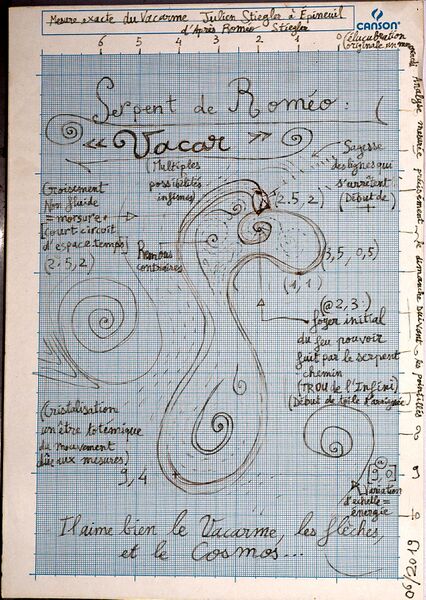 Mesure exacte du Vacarme Julien Stiegler à Epineuil
d'Après Roméo Stiegler
CANSON
(élucubration
originale en
6 5 4 3 2 1 0
Serpent de Roméo : (
« Vacar »
(Multiples
possibilités
infimes)
Sagesse
des lignes qui
s'arrêtent
(Début de
+)
Croisement
Non fluide
= morsure
(court circuit
d'espace temps)
(2,5, 2)
Remous
contraires
(2,5, 2)
(3,5, 0,5)
(1, 1)
(@ 2, 3)
foyer initial
du feu pouvoir
fait par le serpent
chemin
(TROU de l'Infini)
(Début de toile d'araignée)
Cristalisation
un être totémique
du mouvement
dûe aux mesures
3, 4
Variation
d'échelle =
énergie
J'aime bien le Vacarme, les flèches,
et le Cosmos...
Analyse mesurée précisément, le dimanche suivant les pointillés
8
9